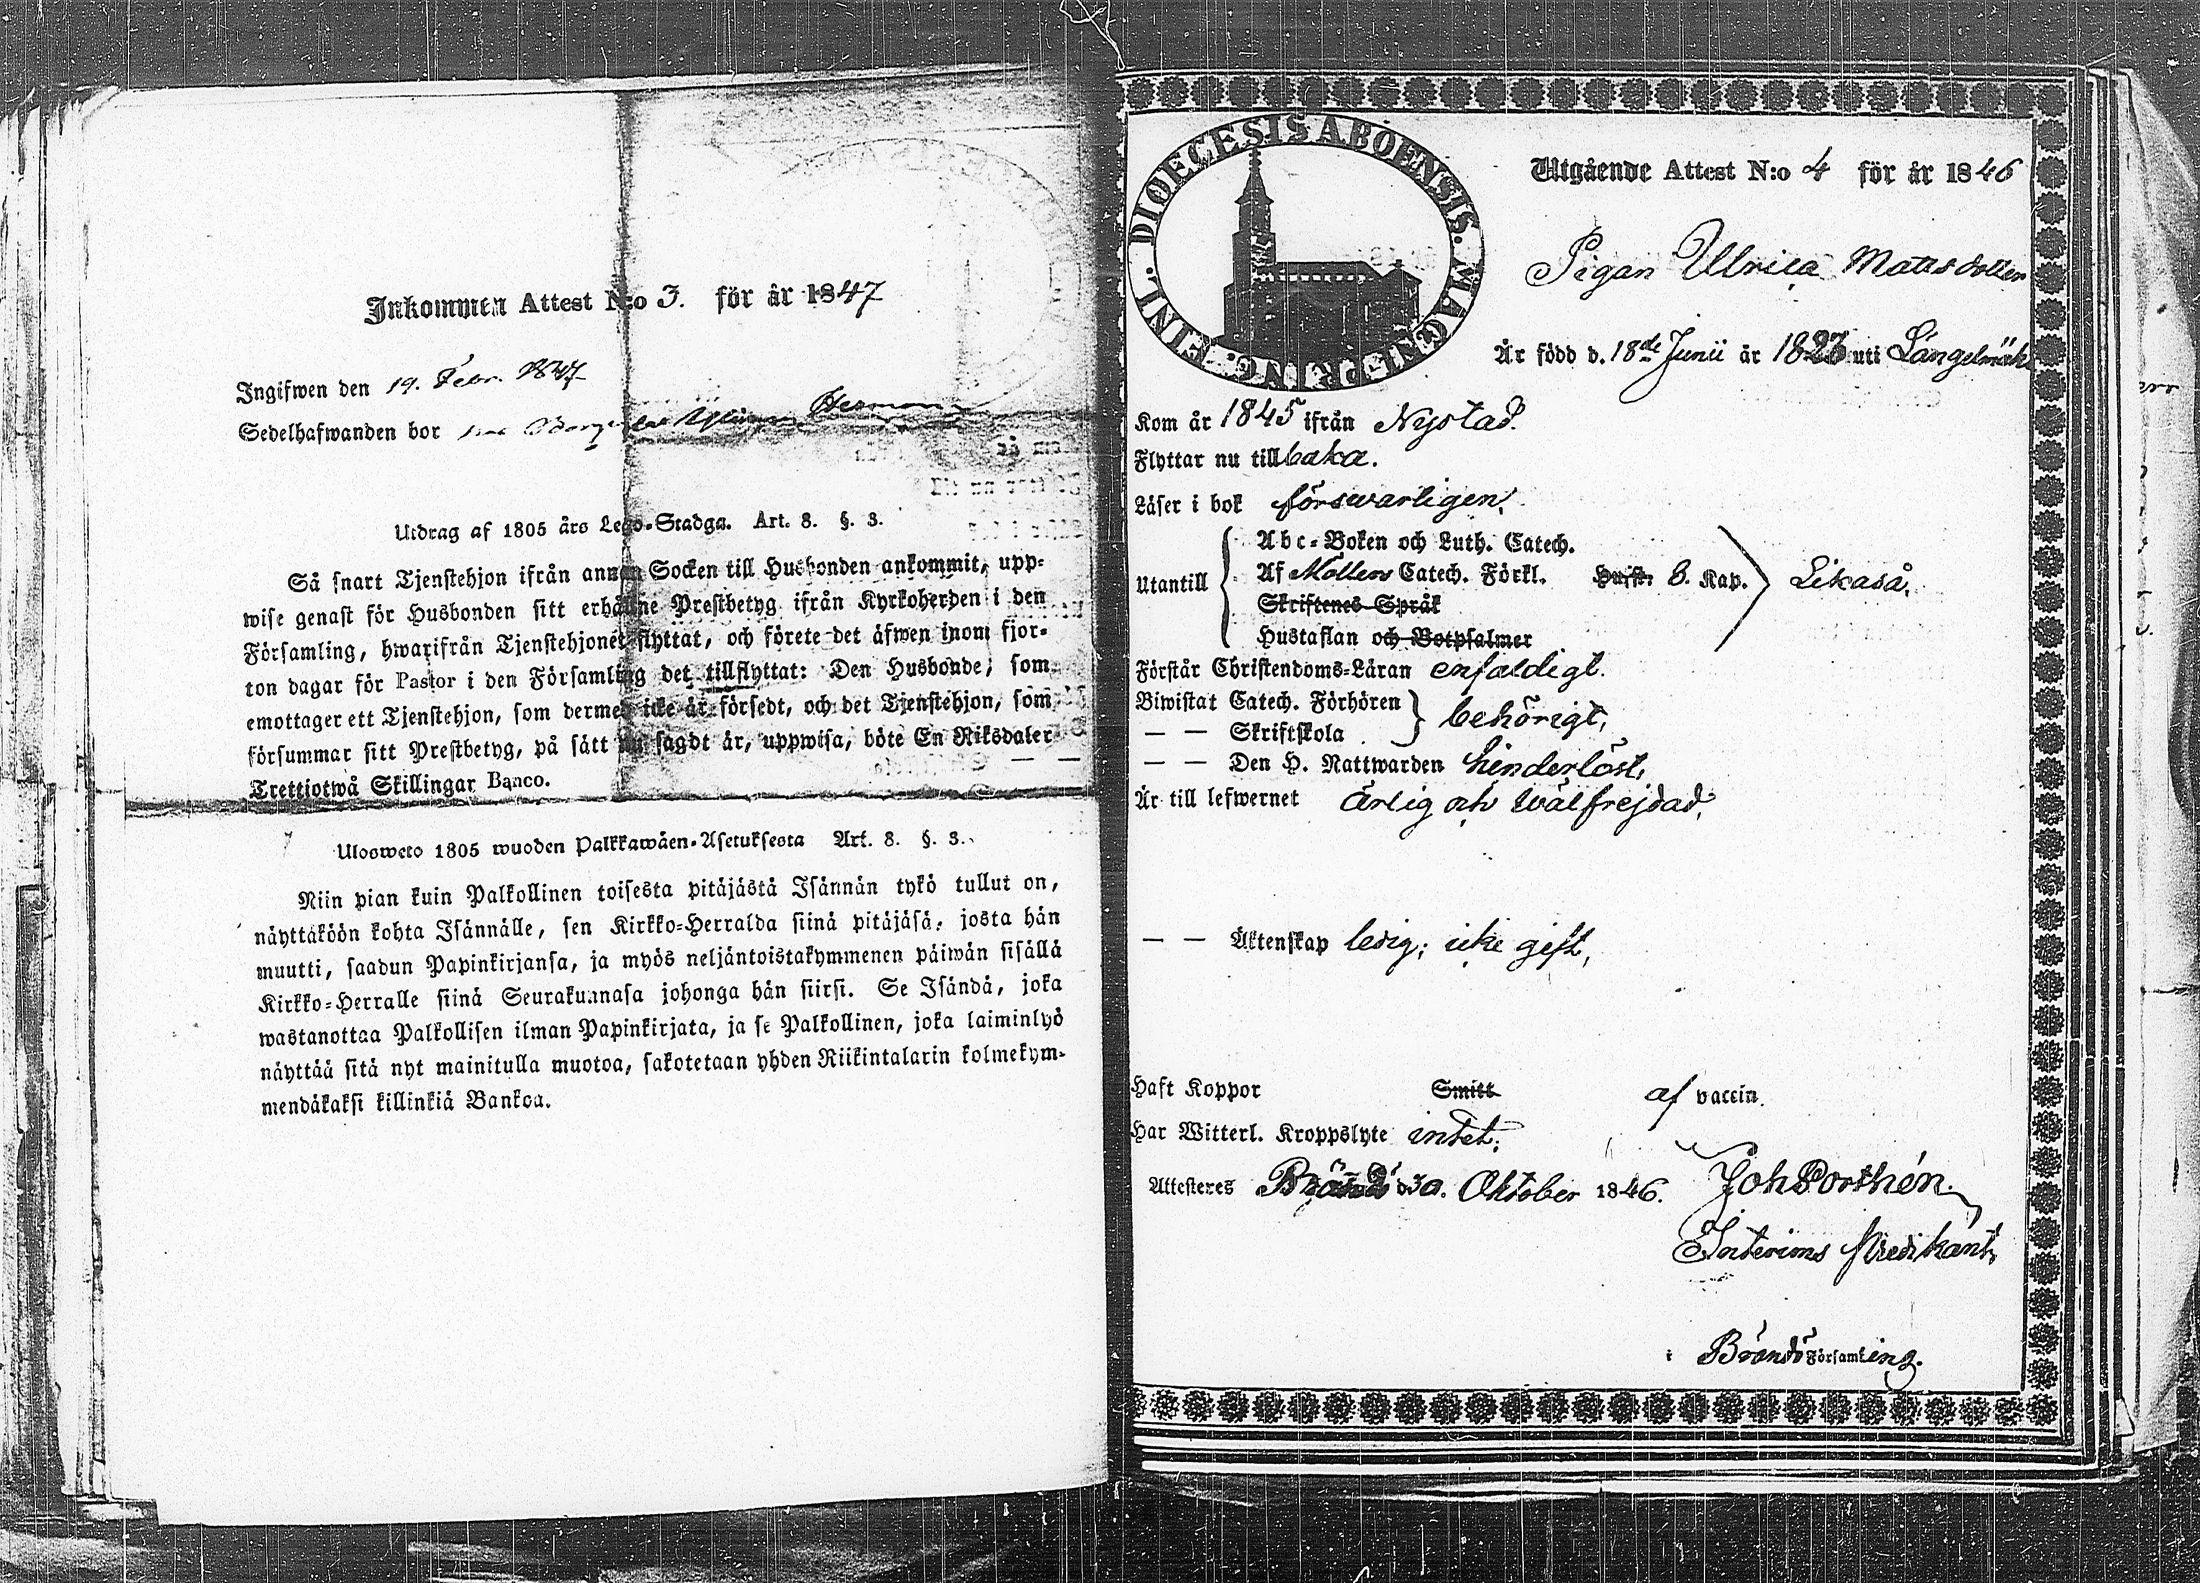 Inkommen Attest N:o 3. för år 1847
Ingifwen den 19. Febr. 1847
Sedelhafwanden bor hos Herman
Utdrag af 1805 års Lego-Stadga. Art. 8. §. 3.
Så snart Tjenstehjon ifrån annan Socken till Husbonden ankommit, upp-
wise genast för Husbonden sitt erhållne Prestbetyg ifrån Kyrkoherden i den
Församling, hwarifrån Tjenstehjonet flyttat, och förete det äfwen inom fjor-
ton dagar för Pastor i den Församling det tillflyttat: Den Husbonde, som
emottager ett Tjenstehjon, som dermed icke är försedt, och det Tjenstehjon, som
försummar sitt Prestbetyg, på sätt nu sagdt är, uppwisa, böte En Riksdaler
Trettiotwå Skillingar Banco.
Ulosweto 1805 wuoden Palkkawäen-Asetuksesta Art. 8. §. 3.
Niin pian kuin Palkollinen toisesta pitäjästä Isännän tykö tullut on,
näyttäköön kohta Isännälle, sen Kirkko-Herralda siinä pitäjäsä, josta hän
muutti, saadun Papinkirjansa, ja myös neljäntoistakymmenen päiwän sisällä
Kirkko-Herralle siinä Seurakunnasa johonga hän siirsi. Se Isändä, joka
wastanottaa Palkollisen ilman Papinkirjata, ja se Palkollinen, joka laiminlyö
näyttää sitä nyt mainitulla muotoa, sakotetaan yhden Riikintalarin kolmekym-
mendäkaksi killinkiä Bankoa.
DIOECESIS ABOENSIS. MAGN. DUC. FINL.
Utgående Attest N:o 4 för år 1846
Pigan Ulrica Matsdotter
Är född d. 18de Junii år 1823 uti Längelmäki
Kom år 1845 ifrån Nystad.
Flyttar nu tillbaka.
Läser i bok förswarligen,
Utantill
Abc-Boken och Luth. Catech.
Af Möllers Catech. Förkl. 8. Kap. Likaså,
Skriftenes Språk
Hustaflan och Botpsalmer
Förstår Christendoms-Läran enfaldigt.
Biwistat Catech. Förhören behörigt,
— — Skriftskola
— — Den H. Nattwarden hinderlöst,
Är till lefwernet ärlig och wälfrejdad,
— — Äktenskap ledig; icke gift,
Haft Koppor Smitt af vaccin.
Har Witterl. Kroppslyte intet;
Attesteres Brändö d 30. Oktober 1846. Joh Porthén.
Interims Predikant,
i Brändö Församling.